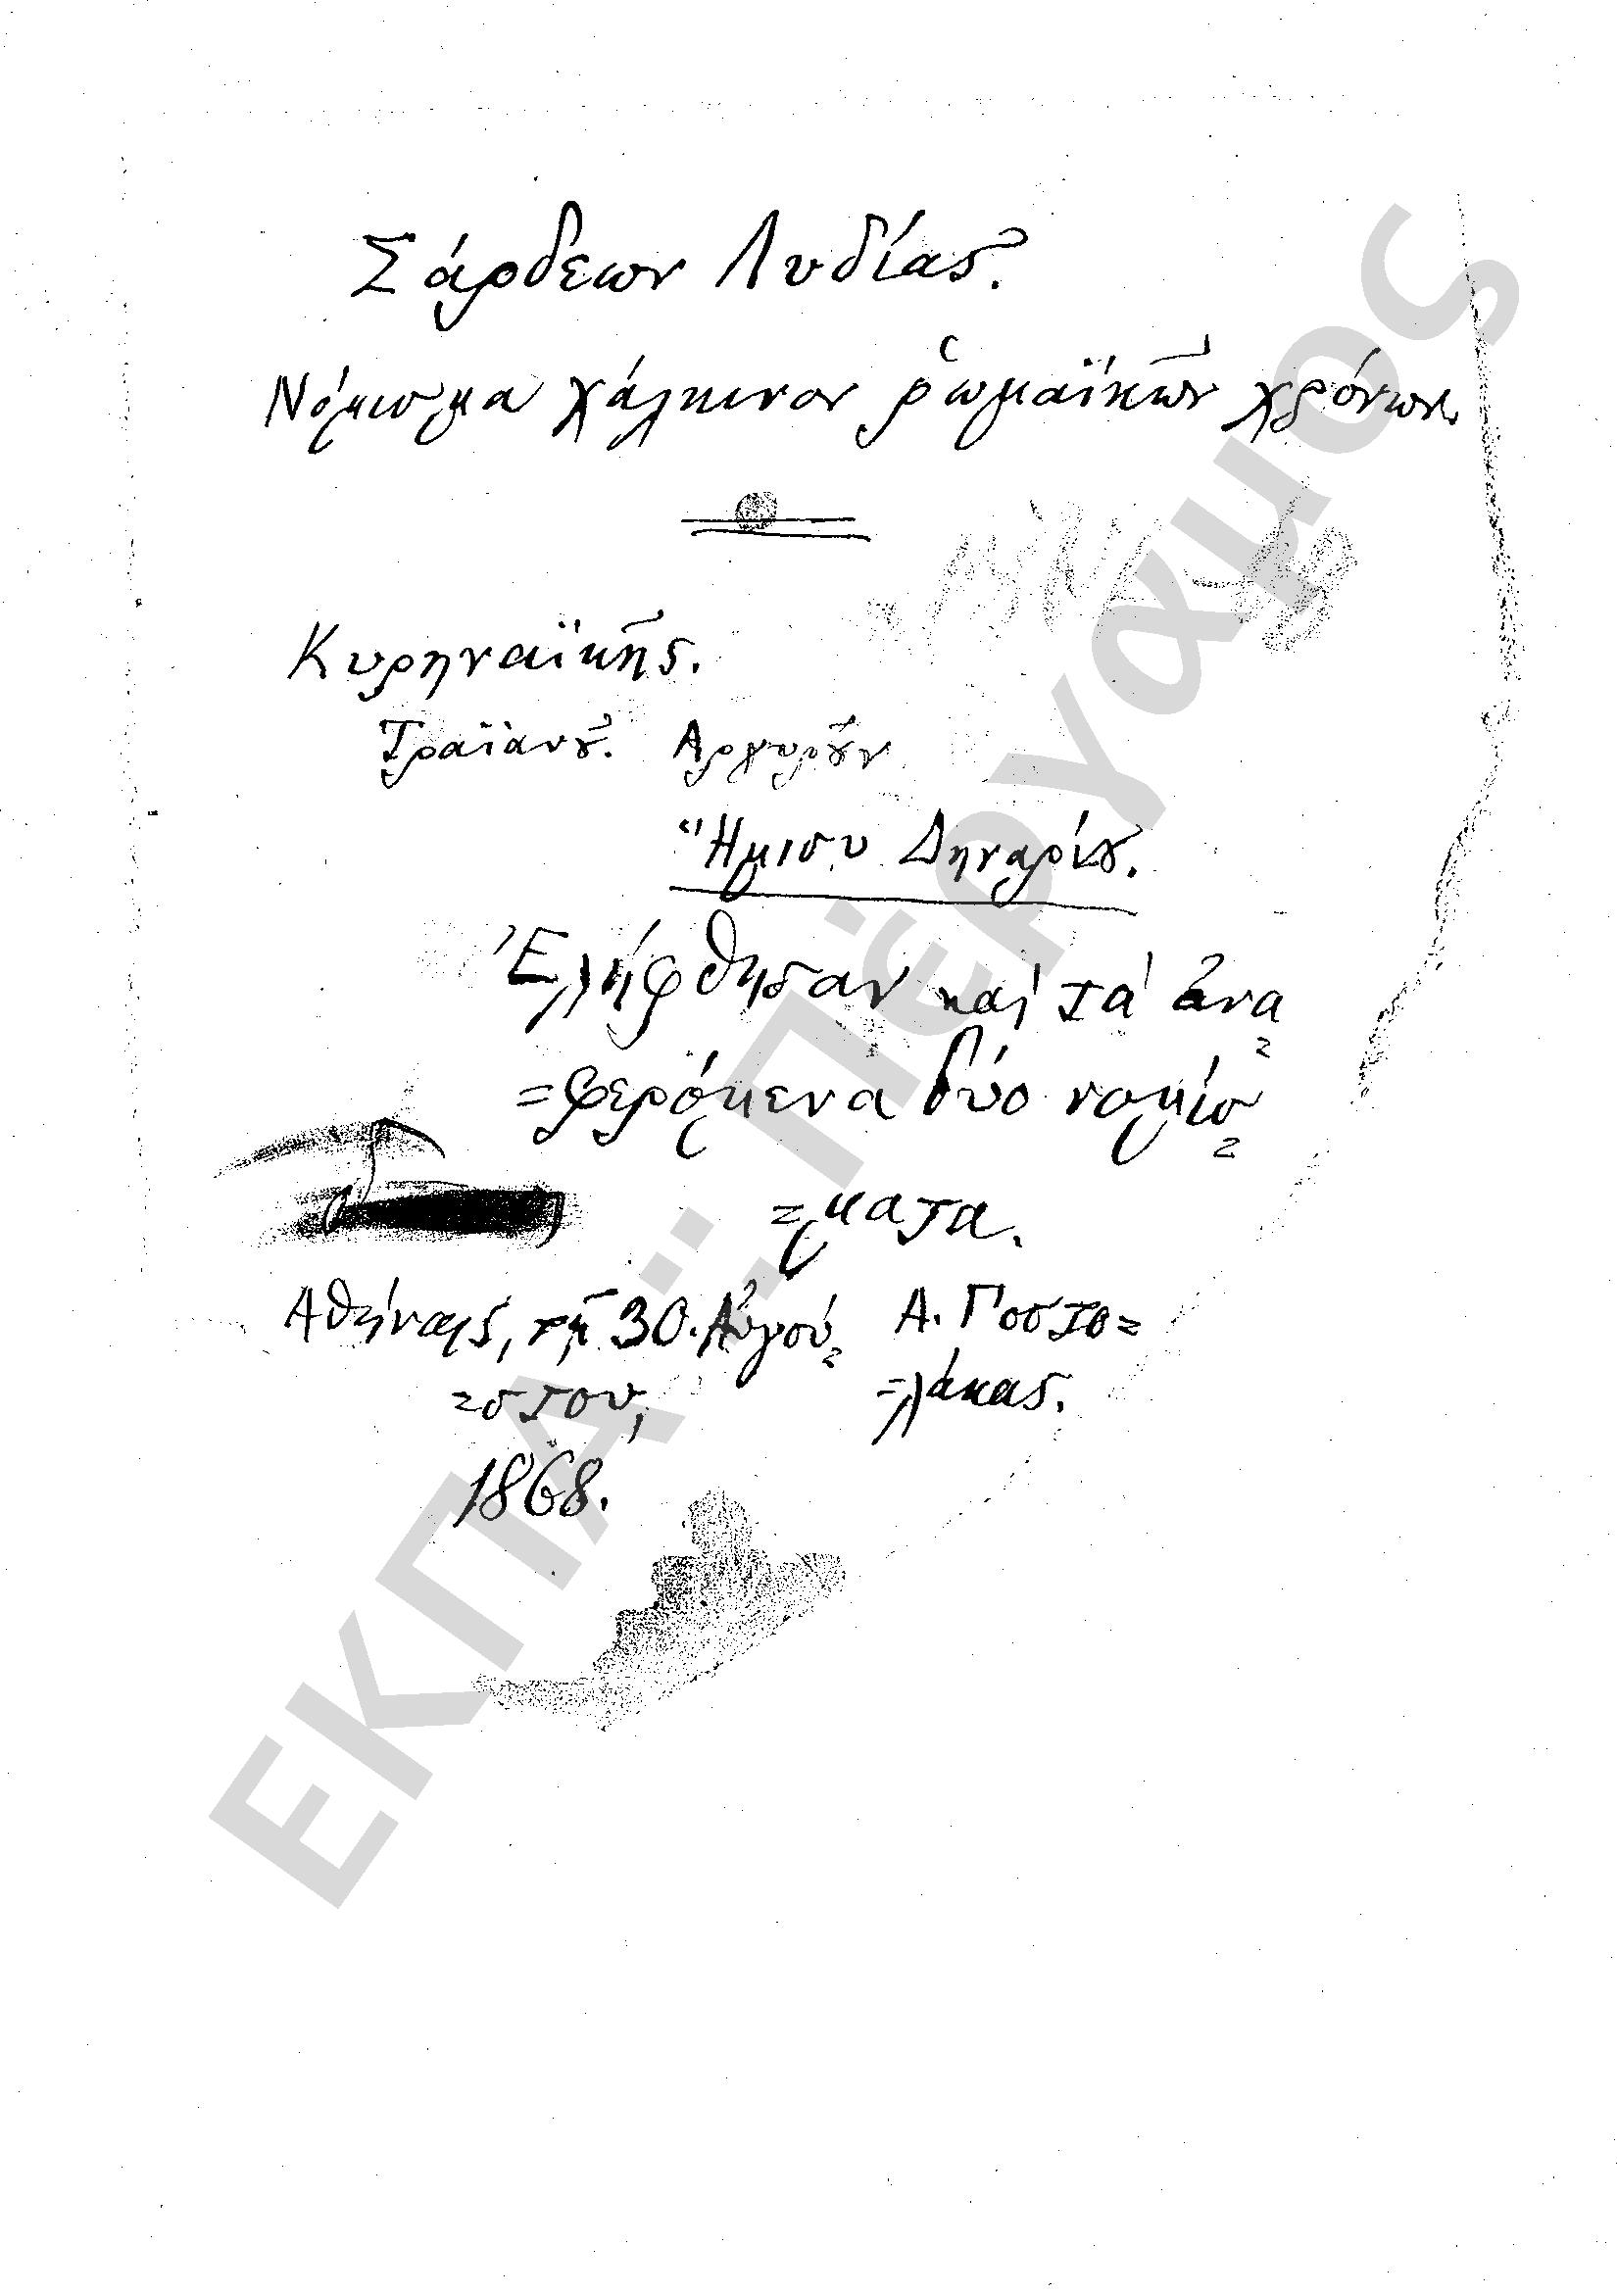 Σάρδεων Λυδίας.
Νόμισμα χάλκινον ῥωμαϊκῶν χρόνων.
Κυρηναϊκῆς.
Τραϊανȣ͂. Αργυρȣ͂ν
Ἥμισυ Δηναρίȣ.
Ἐλήφθησαν καὶ τὰ ἀνα=
=φερόμενα δύο νομίσ=
=ματα.
Αθήναις, τῇ 30. Αὐγού= Α. Ποστο=
=στου, =λάκας.
1868.
ΕΚΠΑ: Πέργαμος